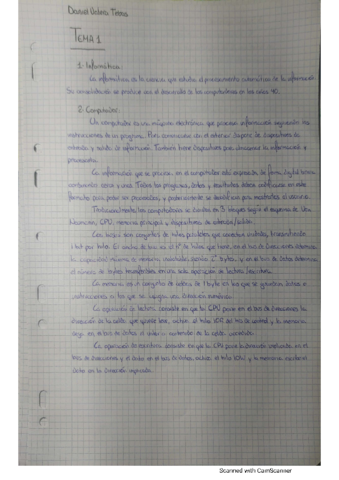 TEMA 1
1- Informática:
La informática es la ciencia que estudia el procesamiento automático de la información.
Su consolidación se produce con el desarrollo de los computadores en los años 40.
2- Computador:
Un computador es una máquina electrónica que procesa información siguiendo las
instrucciones de un programa. Para comunicarse con el exterior dispone de dispositivos de
entrada y salida de información. También tiene dispositivos que almacenan la información y
La información que se procesa en el computador está expresada de forma digital binaria
combinando ceros y unos. Todos los programas, datos y resultados deben codificarse en este
formato para poder ser procesados, y posteriormente se decodifican para mostrarlos al usuario.
Tradicionalmente los computadores se dividen en 3 bloques según el esquema de Von
Neumann, CPU, memoria principal y dispositivos de entrada/salida.
Los buses son conjuntos de cables paralelos que conectan unidades, transmitiendo
1 bit por hilo. El ancho de bus es el nº de hilos que tiene, en el bus de direcciones determina
la capacidad máxima de memoria
el número de bytes transferidos en una sola operación de lectura/escritura.
La memoria es el conjunto de celdas de 1 byte en las que se guardan datos e
instrucciones a las que se asigna una dirección
La operación de lectura consiste en que la CPU pone en el bus de direcciones la
dirección de la celda que quiere leer, activa el hilo del bus de control y la memoria
carga en el bus de datos el contenido de la celda
La operación de escritura consiste en que la CPU pone la dirección en el
bus de direcciones y el dato en el bus de datos, activa el hilo y la memoria escribe el
dato en la dirección
Scanned with CamScanner